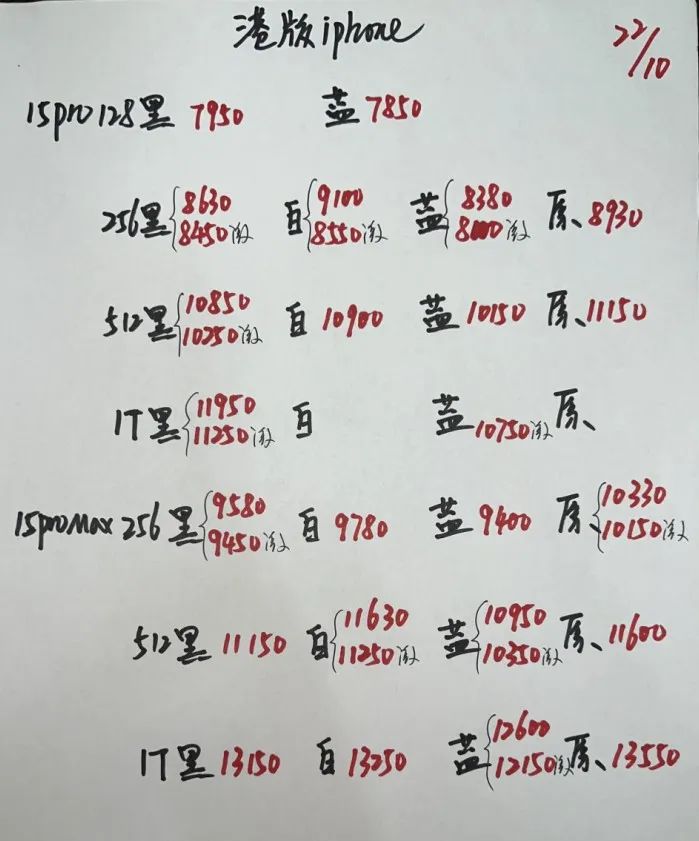 港版iphone 22/10
15pro 128黑 7950 蓝 7850
256黑 8630 8450激 白 9100 8550激 蓝 8380 8100激 原、8930
512黑 10850 10250激 白 10900 蓝 10150 原、11150
1T黑 11950 11250激 白 蓝 10750激 原、
15proMax 256黑 9580 9450激 白 9780 蓝 9400 原、10330 10150激
512黑 11150 白 11630 11250激 蓝 10950 10350激 原、11600
1T黑 13150 白 13250 蓝 12600 12150激 原、13550